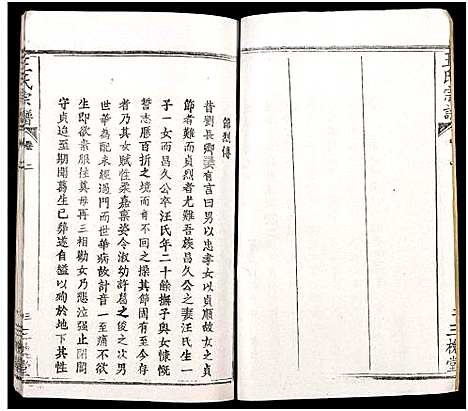 王氏宗譜
卷二
三槐堂
節烈傳
昔劉長卿妻有言曰男以忠孝女以貞順世俗之女貞
節者難而貞烈者尤難吾族昌久公之妻汪氏生一
子一女而昌久公卒汪氏年二十餘撫子與女慷慨
誓志歷百折之境而有不回之操其節固有至今存
者乃其女賦性柔嘉稟姿令淑幼許葛之俊之次男
世華為配未經過門而世華病故訃音一至痛不欲
生即欲奔服往奠母再三相勸女乃悲泣强止閉閣
守貞迨至期聞葛生已葬遂自縊以殉於地下其性
王氏宗譜
三槐堂